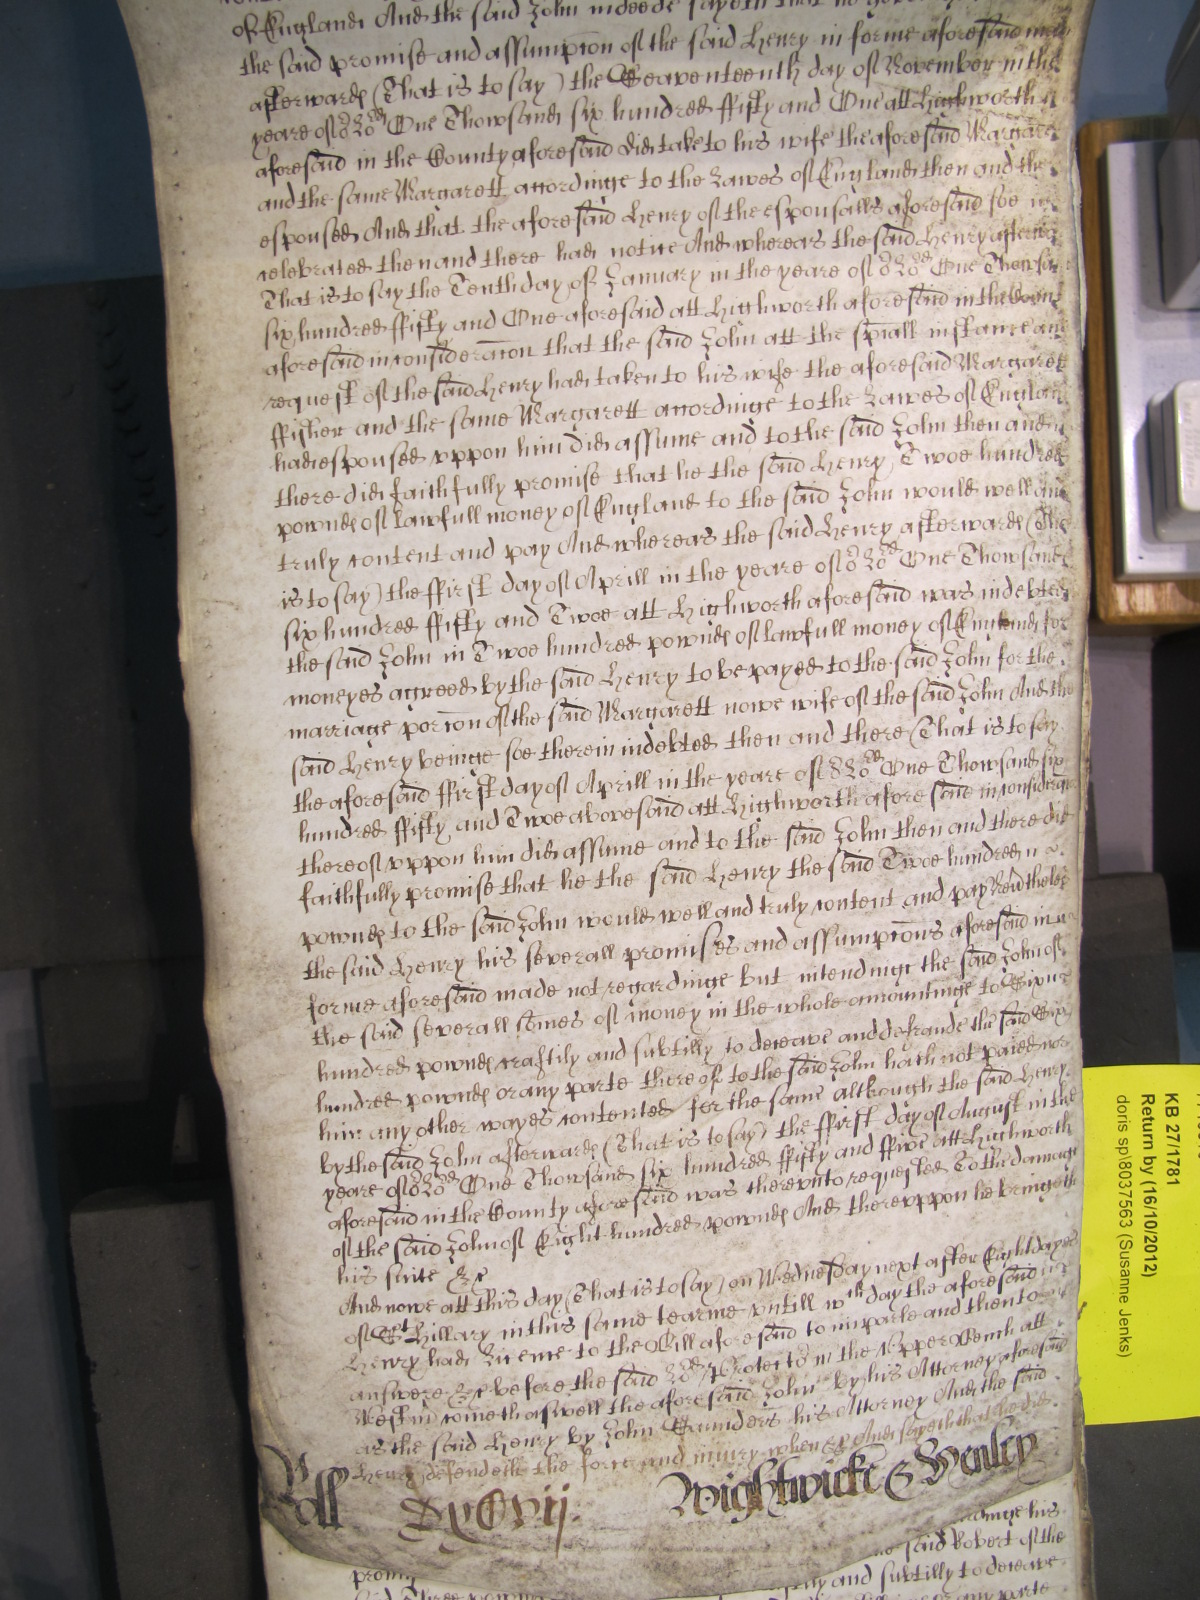 of England And the said John indeede sayeth that no
the said promise and assumpcon of the said Henry in forme aforesaid made
afterwards (That is to say) the Seaventeenth day of November in the
yeare of o^r Lord One Thowsand six hundred ffifty and One att Highworth
aforesaid in the County aforesaid did take to his wife the aforesaid Margarett
and the same Margarett accordinge to the Lawes of England then and there
espoused And that the aforesaid Henry of the espousalls aforesaid soe
celebrated then and there had notice And whereas the said Henry afterwards
That is to say the Tenth day of January in the yeare of o^r Lord One Thowsand
six hundred ffifty and One aforesaid att Highworth aforesaid in the County
aforesaid in consideracon that the said John att the spiall instance and
request of the said Henry had taken to his wife the aforesaid Margarett
ffisher and the same Margarett accordinge to the Lawes of England
had espoused uppon him did assume and to the said John then and
there did faithfully promise that he the said Henry Twoe hundred
pownds of lawfull money of England to the said John would well and
truly content and pay And whereas the said Henry afterwards (That
is to say) the ffirst day of Aprill in the yeare of o^r Lord One Thowsand
six hundred ffifty and Twoe att Highworth aforesaid was indebted
the said John in Twoe hundred pownds of lawfull money of England for
moneyes agreed by the said Henry to be payed to the said John for the
marriage porcon of the said Margarett nowe wife of the said John And the
said Henry beinge soe therein indebted then and there (That is to say
the aforesaid ffirst day of Aprill in the yeare of o^r Lord One Thowsand six
hundred ffifty and Twoe abovesaid att Highworth aforesaid in consideracon
thereof uppon him did assume and to the said John then and there did
faithfully promise that he the said Henry the said Twoe hundred
pownds to the said John would well and truly content and pay Neverthelesse
the said Henry his severall promises and assumpcons aforesaid in
forme aforesaid made not regardinge but intendinge the said John of
the said severall somes of money in the whole amountinge to Sixe
hundred pownds craftily and subtilly to deceave and defraude the said Six
hundred pownds or any parte thereof to the said John hath not paied nor
him any other wayes contented for the same although the said Henry
by the said John afterwards (That is to say) the ffirst day of August in the
yeare of o^r Lord One Thowsand six hundred ffifty and ffive att Highworth
aforesaid in the County aforesaid was thereunto requested To the damage
of the said John of Eight hundred pownds And thereuppon he bringeth
his suite &c
And nowe att this day (That is to say) on Wednesday next after Eight dayes
of S^t Hillary in this same tearme untill w^ch day the aforesaid
Henry had licence to the Bill aforesaid to imparle and then to
answere &c before the said Lord Protector in the Upper Bench att
Westm^r cometh aswell the aforesaid John by his Attorney aforesaid
as the said Henry by John Saunders his Attorney And the said
Henry defendeth the force and injury when &c And sayeth that he did
Roll DxCvij Wightwicke & Henley
his
said Robert of the
promis
and subtilly to deceave
or any parte